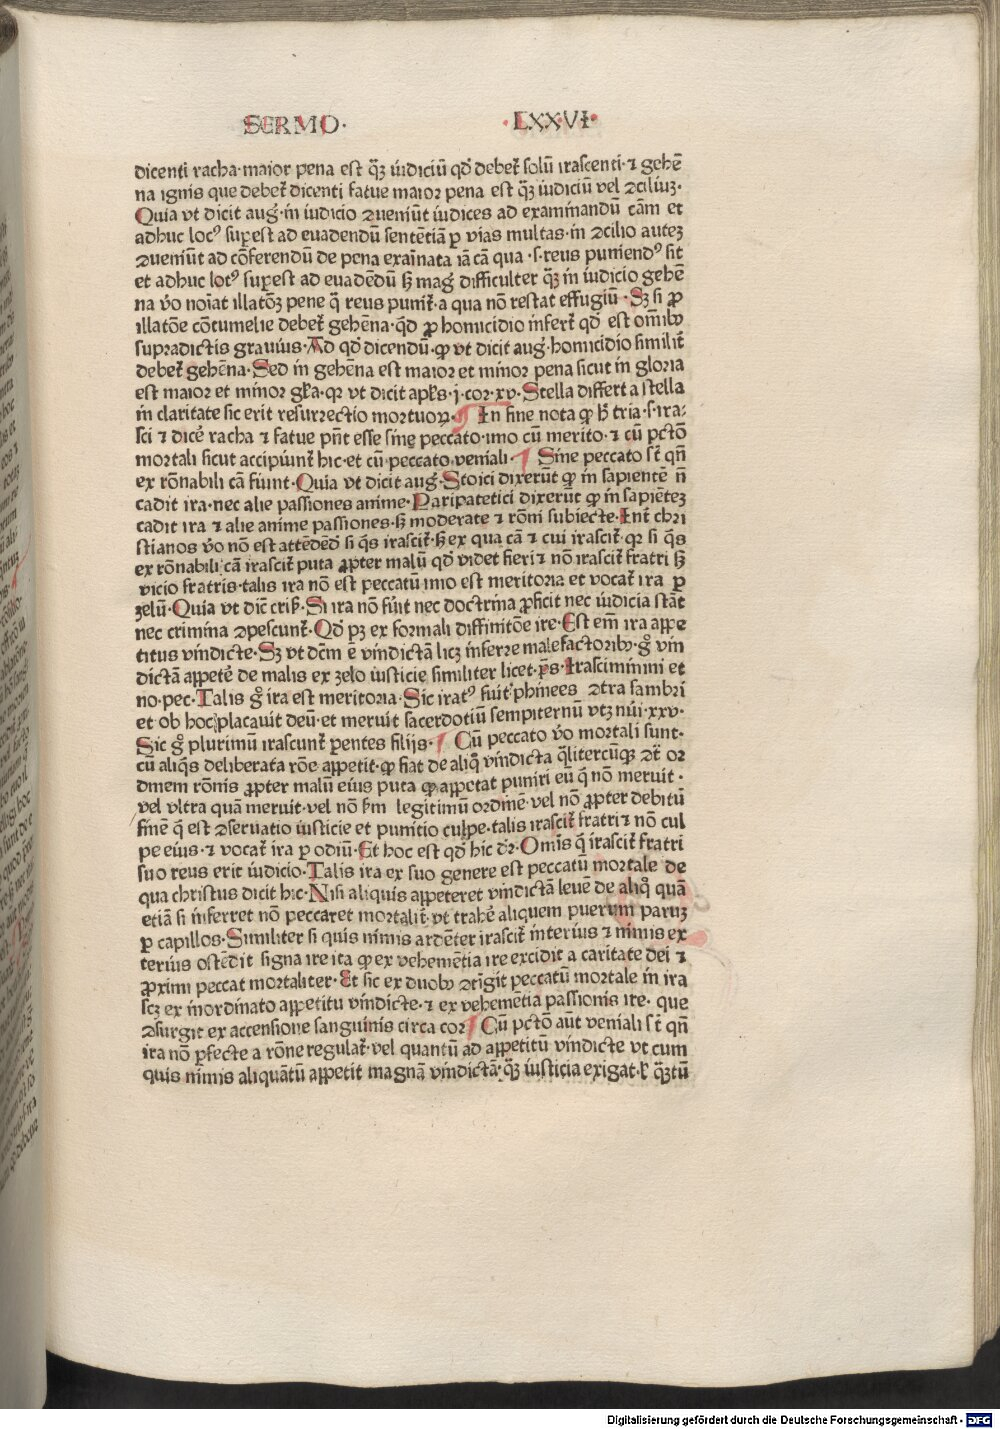 SERMO· ·LXXVI·
dicenti racha·maior pena est q̃ꝫ iudiciū qd̄ debet̄ solū irascenti·⁊ gehē
na ignis que debet̄ dicenti fatue maior pena est q̃ꝫ iudiciū vel ꝯciliuꝫ·
Quia vt dicit aug̃·in iudicio ꝯueniūt iudices ad examinandū cām et
adhuc locꝰ supest ad euadendū sentētiā p̱ vias multas·in ꝯcilio auteꝫ
ꝯueniūt ad cōferendū de pena exaīnata iā cā qua ·s·reus puniendꝰ sit
et adhuc locꝰ supest ad euadēdū sꝫ mag̃ difficulter q̃ꝫ in iudicio gehē
na v̄o noīat illatōꝫ pene q̄ reus punit̄·a qua nō restat effugiū·Sꝫ si ꝓ
illatōe cōtumelie debet̄ gehēna·qd̄ ꝓ homicidio infert̄ qd̄ est om̄ibꝰ
supradictis grauius·Ad qd̄ dicendū·ꝙ vt dicit aug̃·homicidio similit̄
debet̄ gehēna·Sed in gehēna est maior et minor pena sicut in gloria
est maior et minor gl̄a·qꝛ vt dicit apl̄s·j·cor·xv·Stella differt a stella
in claritate sic erit resurrectio mortuoꝝ·¶ In fine nota ꝙ h̄ tria·s·ira-
sci ⁊ dicē racha ⁊ fatue pn̄t esse sine peccato·imo cū merito·⁊ cū pctō
mortali sicut accipiunt̄ hic·et cū peccato veniali·¶ Sine peccato st̄ qn̄
ex rōnabili cā fiunt·Quia vt dicit aug̃·Stoici dixerūt ꝙ in sapientē n̄
cadit ira·nec alie passiones anime·Paripatetici dixerūt ꝙ in sapiēteꝫ
cadit ira ⁊ alie anime passiones·sꝫ moderate ⁊ rōni subiecte·Int̄ chri
stianos v̄o nō est attēdēd̄ si q̄s irascit̄·sꝫ ex qua cā ⁊ cui irascit̄·qꝛ si q̄s
ex rōnabili cā irascit̄ puta ꝓpter malū qd̄ videt fieri ⁊ nō irascit̄ fratri sꝫ
vicio fratris·talis ira nō est peccatū imo est meritoria et vocat̄ ira p̱
zelū·Quia vt dic̄ cris̄·Si ira nō fuit̄ nec doctrina ꝓficit nec iudicia stāt
nec crimina ꝯpescunt̄·Qd̄ pꝫ ex formali diffinitōe ire·Est em̄ ira appe
titus vindicte·Sꝫ vt dc̄m ē vindictā licꝫ inferre malefactoribꝰ·g̊ vin
dictā appetē de malis ex zelo iusticie similiter licet·p̄s·Irascimini et
no·pec·Talis g̊ ira est meritoria·Sic iratꝰ fuit phinees ꝯtra sambri
et ob hoc placauit deū·et meruit sacerdotiū sempiternū vtꝫ nūi·xxv·
Sic g̊ plurimū irascunt̄ p̱entes filijs·¶ Cū peccato v̄o mortali sunt·
cū aliq̄s deliberata rōe appetit·ꝙ fiat de aliq̊ vindicta q̄litercūqꝫ ꝯt̄ or
dinem rōnis ꝓpter malū eius puta ꝙ appetat puniri eū q̄ nō meruit·
vel vltra quā meruit·vel nō sm̄ legitimū ordinē·vel nō ꝓpter debitū
finē q̄ est ꝯseruatio iusticie et punitio culpe·talis irascit̄ fratri ⁊ nō cul
pe eius·⁊ vocat̄ ira p̱ odiū·Et hoc est qd̄ hic dr̄·Omīs q̄ irascit̄ fratri
suo reus erit iudicio·Talis ira ex suo genere est peccatū mortale de
qua christus dicit hic·Nisi aliquis appeteret vindictā leuē de aliq̊ quā
etiā si inferret nō peccaret mortalit̄·vt trahē aliquem puerum paruꝫ
p̱ capillos·Similiter si quis nimis ardēter irascit̄ interius ⁊ nimis ex
terius ostēdit signa ire ita ꝙ ex vehemētia ire excidit a caritate dei ⁊
ꝓximi peccat mortaliter·Et sic ex duobꝰ ꝯtīgit peccatū mortale in ira
scꝫ ex inordinato appetitu vindicte·⁊ ex vehemētia passionis ire· que
ꝯsurgit ex accensione sanguinis circa cor¶ Cū pctō aūt veniali st̄ qn̄
ira nō p̱fecte a rōne regulat̄·vel quantū ad appetitū vindicte vt cum
quis nimis aliquātū appetit magnā vindictā·q̃ꝫ iusticia exigat·l̄ q̃ꝫtū
Digitalisierung gefördert durch die Deutsche Forschungsgemeinschaft - DFG